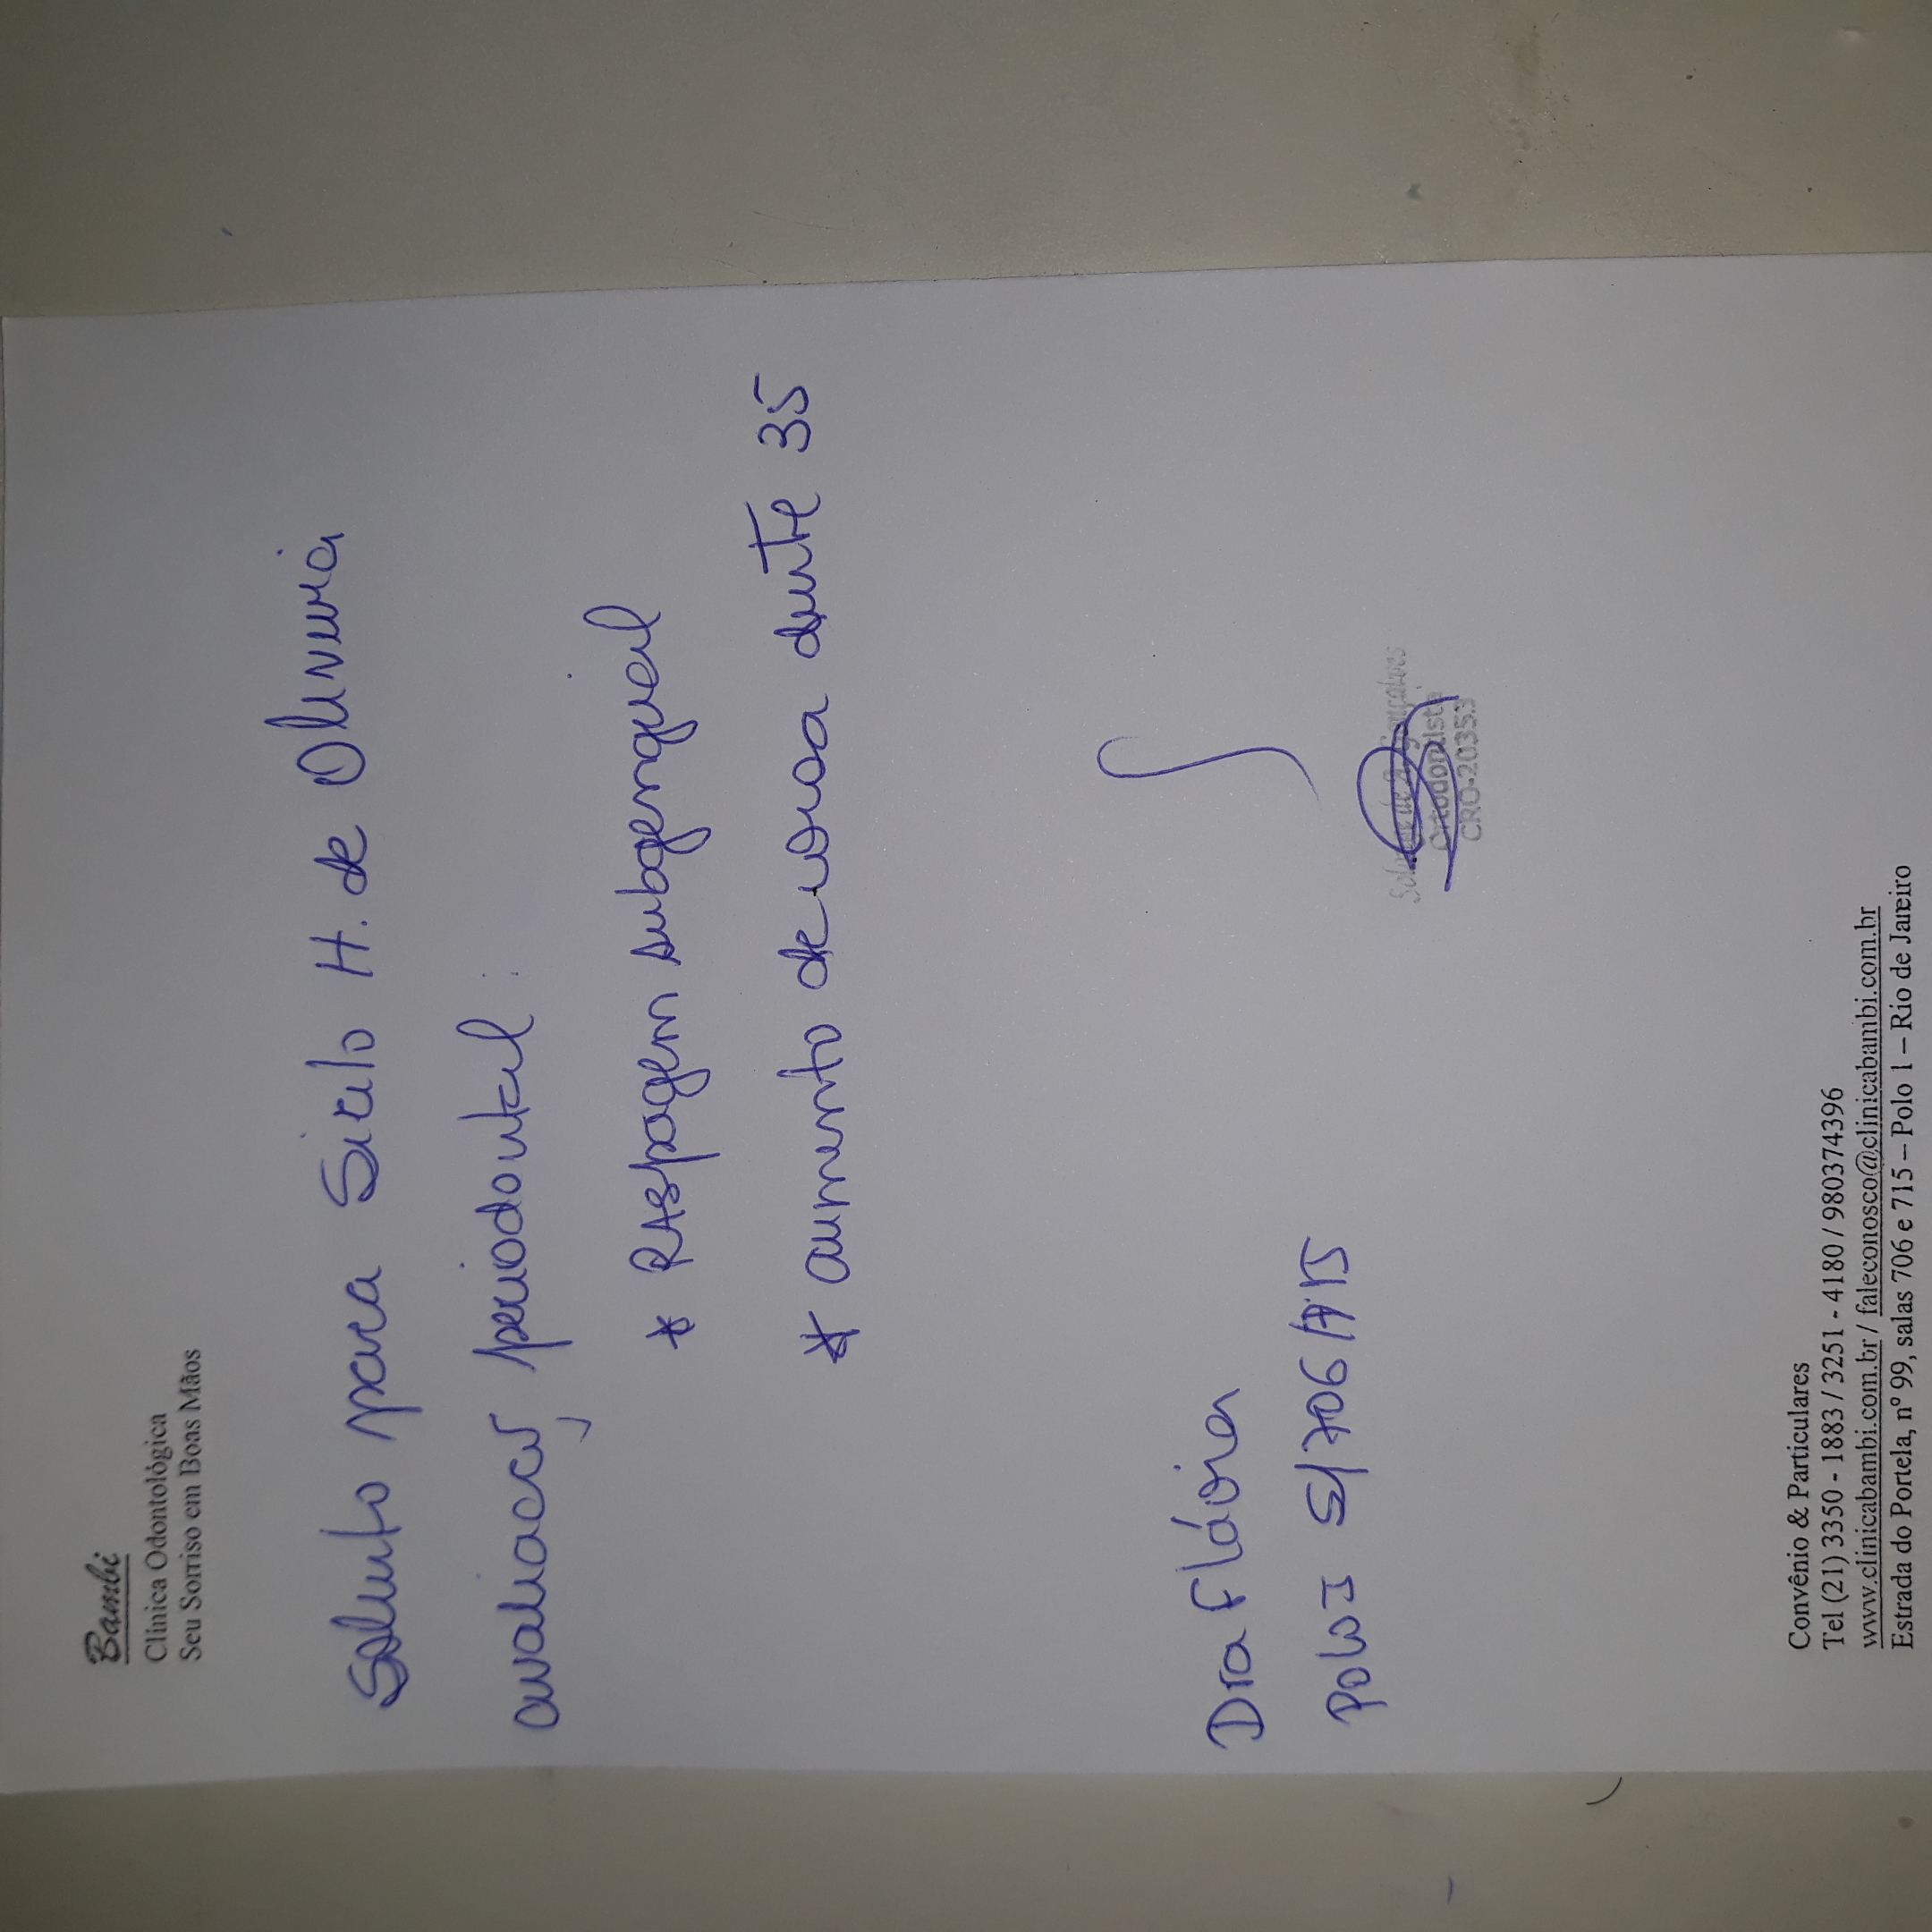 Bambi
Clínica Odontológica
Seu Sorriso em Boas Mãos
Solicito para Sirlo H. de Oliveira
avaliação periodontal:
* RAspagem subgengival
* aumento de coroa dente 35
Dra Flávia
Polo I S/706/715
de
Gonçalves
Ortodontista
CRO-20353
Convênio & Particulares
Tel (21) 3350 - 1883 / 3251 - 4180 / 980374396
www.clinicabambi.com.br / faleconosco@clinicabambi.com.br
Estrada do Portela, nº 99, salas 706 e 715 – Polo 1 – Rio de Janeiro